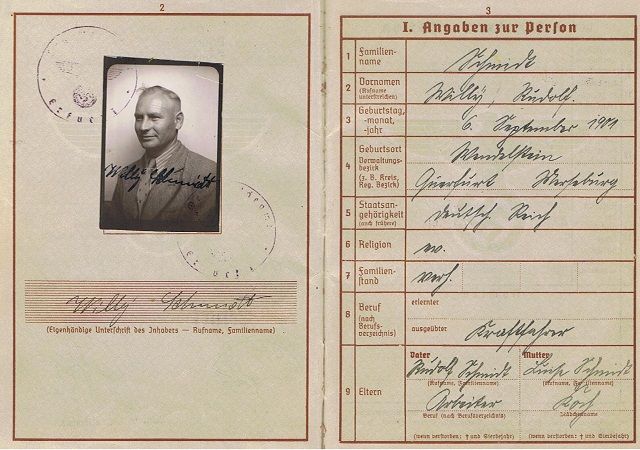 2
Erfurt
Willy Schmidt
Erfurt
Willy Schmidt
(Eigenhändige Unterschrift des Inhabers — Rufname, Familienname)
3
I. Angaben zur Person
1 Familien-
name
Schmidt
2 Vornamen
(Rufname
unterstreichen)
Willy, Rudolf.
3 Geburtstag,
-monat,
-jahr
6. September 1901
4 Geburtsort
Verwaltungs-
bezirk
(z. B. Kreis,
Reg. Bezirk)
Wendelstein
Querfurt Merseburg
5 Staatsan-
gehörigkeit
(auch frühere)
Deutsch. Reich
6 Religion
ev.
7 Familien-
stand
verh.
8 Beruf
(nach
Berufs-
verzeichnis)
erlernter
ausgeübter Kraftfahrer
9 Eltern
Vater Mutter
Rudolf Schmidt Schmidt
(Rufname, Familienname) (Rufname, Familienname)
Arbeiter Koch
Beruf (nach Berufsverzeichnis) Mädchenname
(wenn verstorben: † und Sterbejahr) (wenn verstorben: † und Sterbejahr)